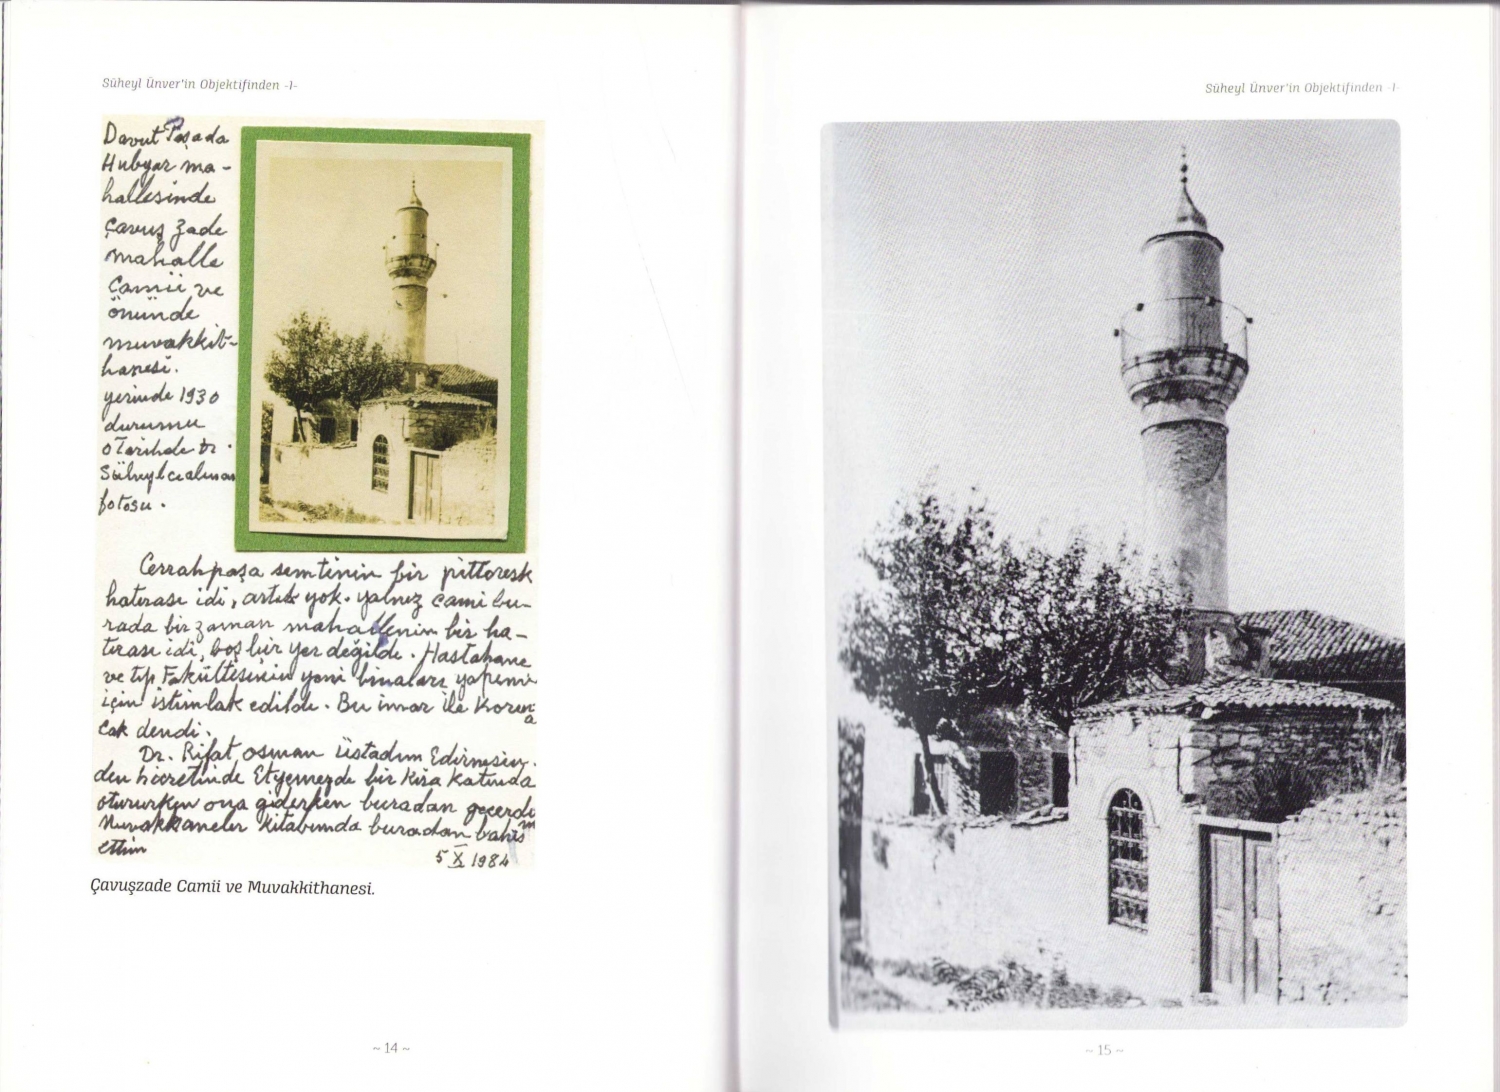 Süheyl Ünver'in Objektifinden -I-
Davut Paşada
Hubyar ma-
hallesinde
Çavuş zade
mahalle
Camii ve
önünde
muvakkit-
hanesi.
yerinde 1930
durumu
o Tarihde Dr.
Süheylce alınan
fotosu.
Cerrahpaşa semtinin bir pittoresk
hatırası idi, artık yok. yalnız cami bu-
rada bir zaman mahallenin bir ha-
tırası idi, boş bir yer değilde. Hastahane
ve tıp Fakültesinin yeni binaları yapımı
için istimlak edildi. Bu imar ile Koruna
cak dendi.
Dr. Rifat osman üstadım Edirnesin-
den hicretinde Etyemezde bir Kira Katında
otururken ona giderken buradan geçerdim
Muvakkaneler Kitabımda buradan bahs
ettim
5 X 1984
Çavuşzade Camii ve Muvakkithanesi.
~ 14 ~
Süheyl Ünver'in Objektifinden -I-
~ 15 ~